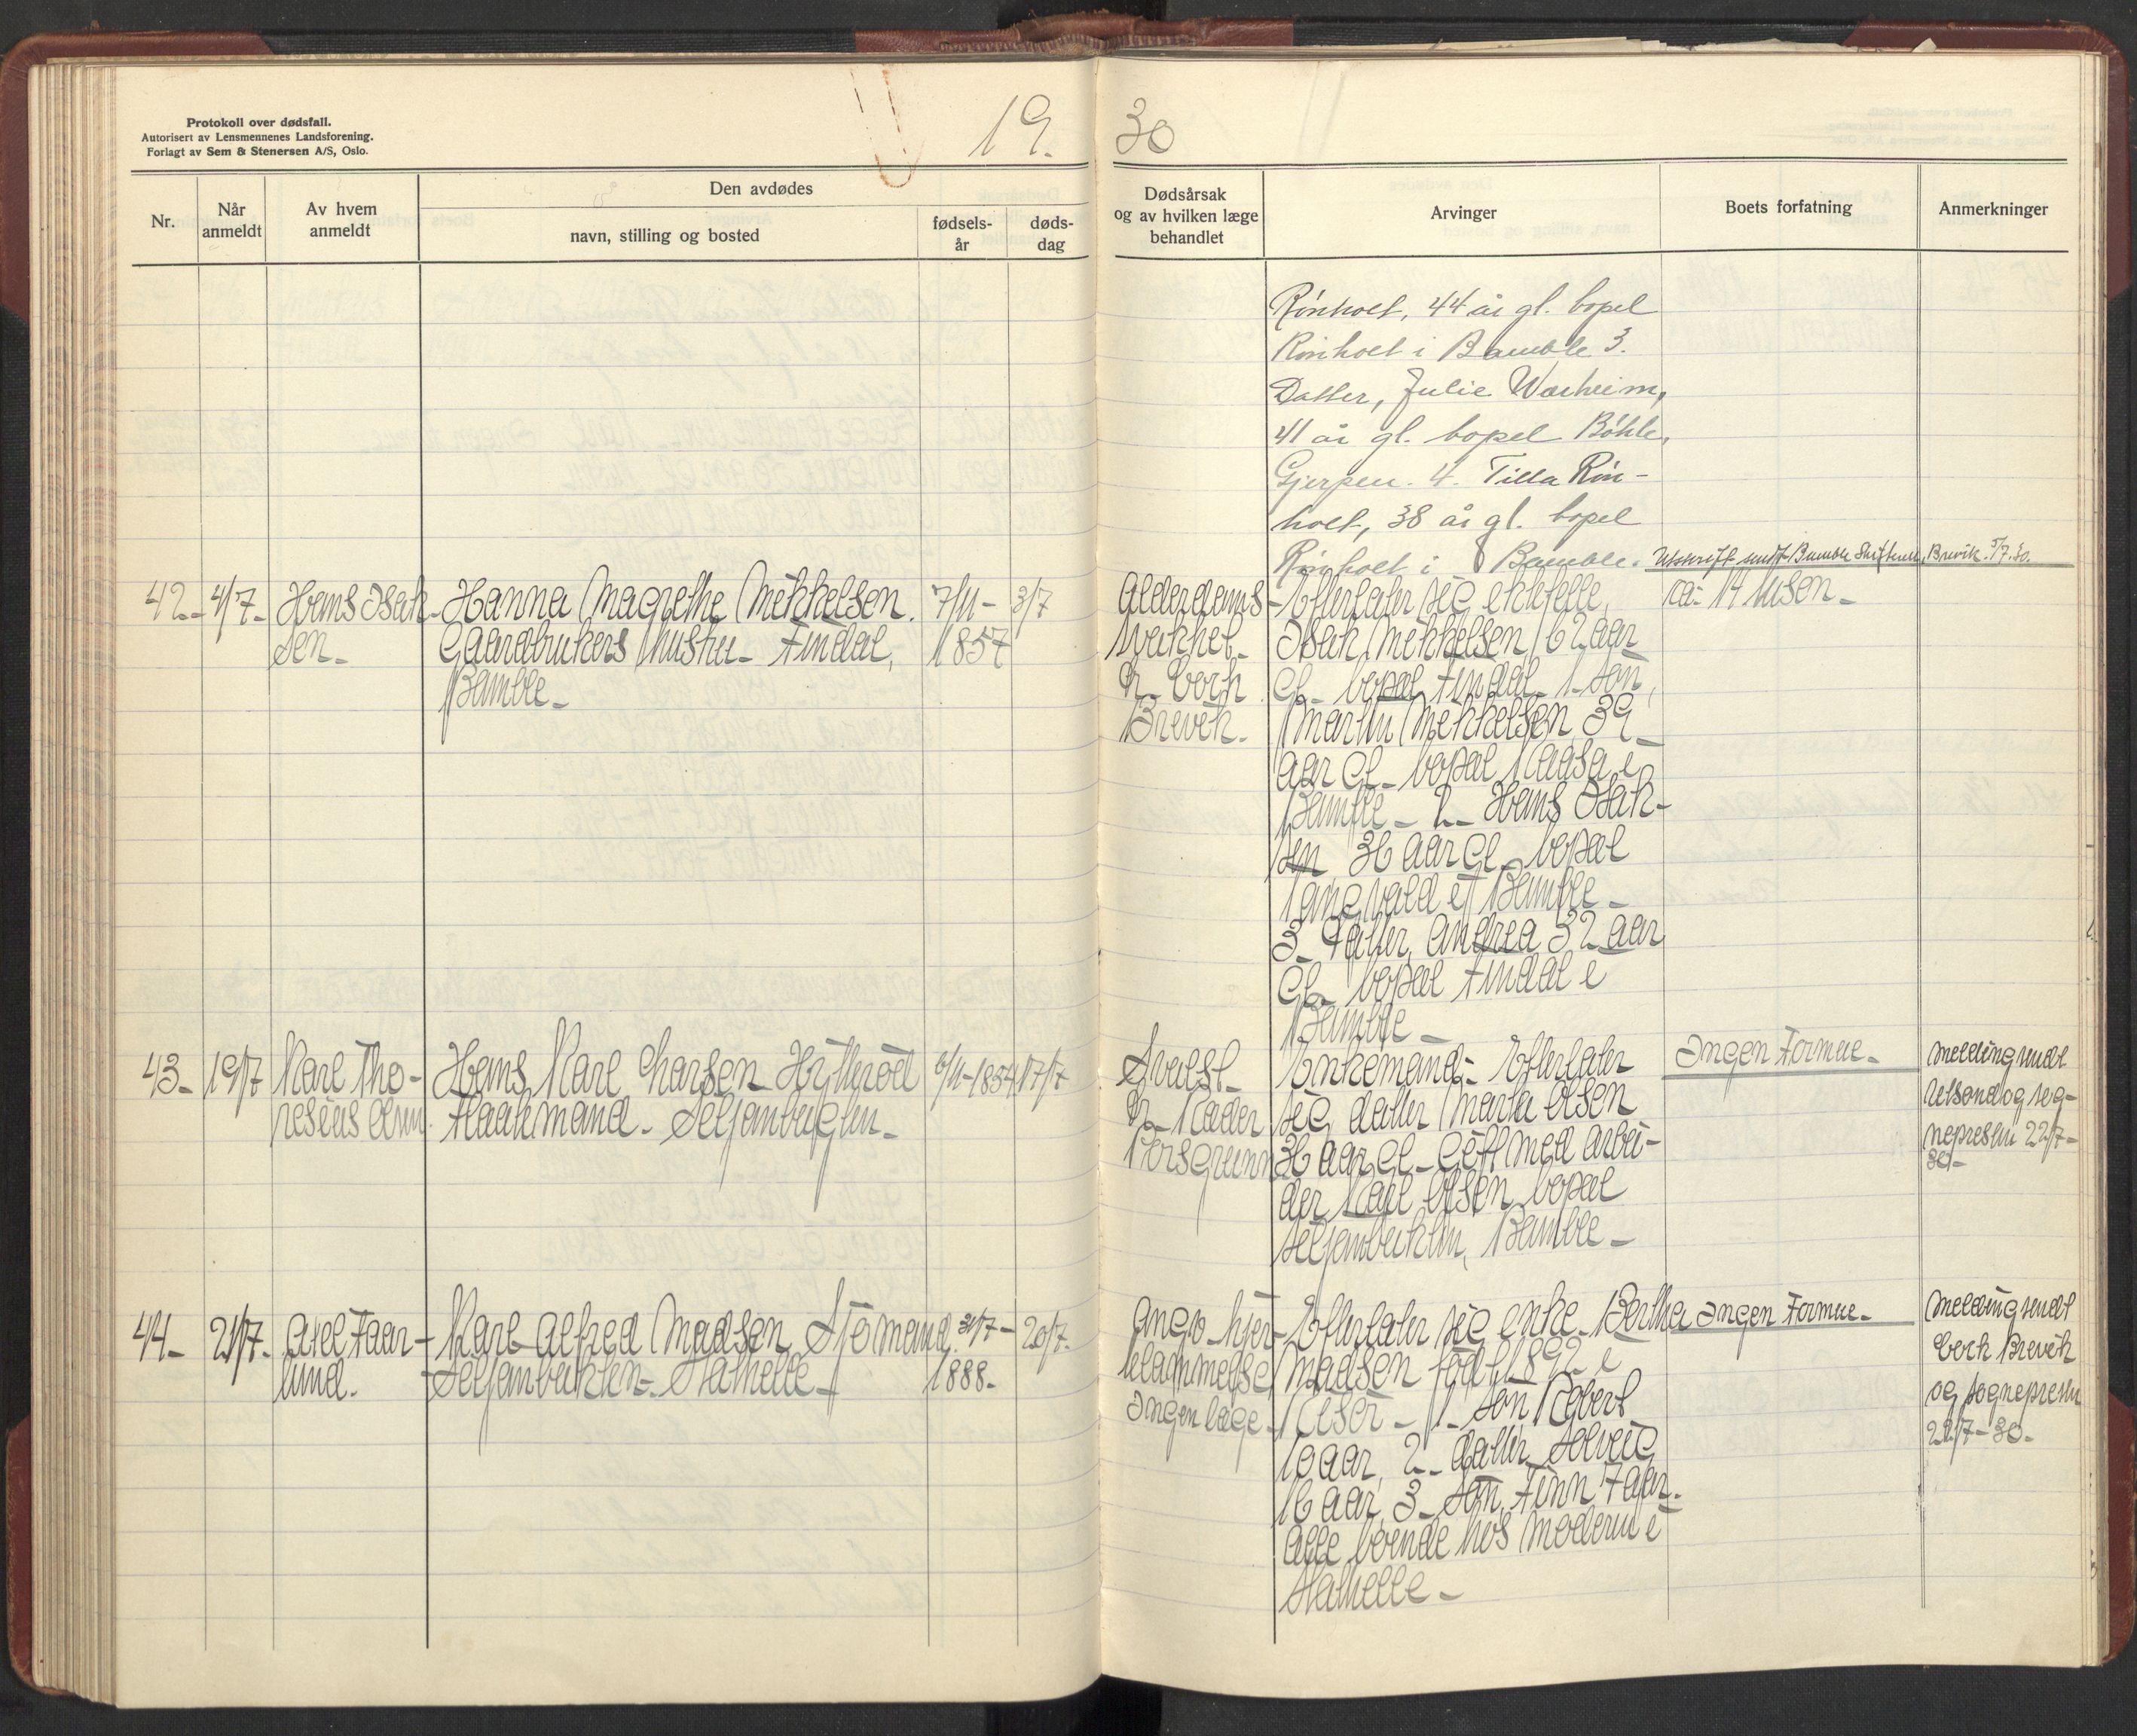 Protokoll over dødsfall.
Autorisert av Lensmennenes Landsforening.
Forlagt av Sem & Stenersen A/S, Oslo.
19.
30
Nr.
Når
anmeldt
Av hvem
anmeldt
Den avdødes
navn, stilling og bosted
fødsels-
år
døds-
dag
Dødsårsak
og av hvilken læge
behandlet
Arvinger
Boets forfatning
Anmerkninger
Rinholt, 44 år gl. bopel
Rinholt i Bamble 3.
Datter, Julie Warheim,
41 år gl. bopel Böhle,
Gjerpen. 4. Tilla Rin-
holt, 38 år gl. bopel
Rinholt i Bamble.
Utskrift sendt Bamble Skifterett, Brevik 5/7.30.
42-
4/7-
Hans Isak-
sen-
Hanna Magrethe Mikkelsen.
Gaardbrukers hustru- Findal,
Bamble-
7/11-
1857
3/7
Alderdoms-
svakhet-
Dr. Borch
Brevik-
Efterlater sig ektefelle,
Isak Mikkelsen, 62 aar
gl- bopæl Findal- 1- Sön,
Martin Mikkelsen 39
aar gl- bopæl Aasa i
Bamble- 2- Hans Isak-
sen 36 aar gl- bopæl
Langvald i Bamble-
3- Datter, Andrea 32 aar
gl- bopæl Findal i
Bamble-
43-
19/7
Karl Tho-
resius Olsen.
Hans Karl Larsen Hytterød
Flaatemand- Seljanbugten-
6/11-1854
17/7
Svulst-
Dr- Kader
Porsgrunn
Enkemand- Efterlater
sig datter Marta Olsen
36 aar gl- gift med arbei-
der Karl Olsen bopæl
Seljanbukten, Bamble-
Ingen Formue-
Melding sendt
og sog-
nepresten 22/7-
30-
44-
21/7-
Axel Faar-
lund.
Karl Alfred Madsen Sjömand.
Seljanbukten- Stathelle-
31/7-
1888-
20/7-
Angio- hjer-
teklammelse
Ingen læge-
Efterlater sig enke- Bertha
Madsen född 1892 i
1- Sön Robert
10 aar, 2- datter Solveig
16 aar, 3- Sön, Finn 7 aar-
Alle boende hos moderen i
Stathelle-
Ingen Formue-
Melding sendt
Borch Brevik
og sognepresten
22/7-30-